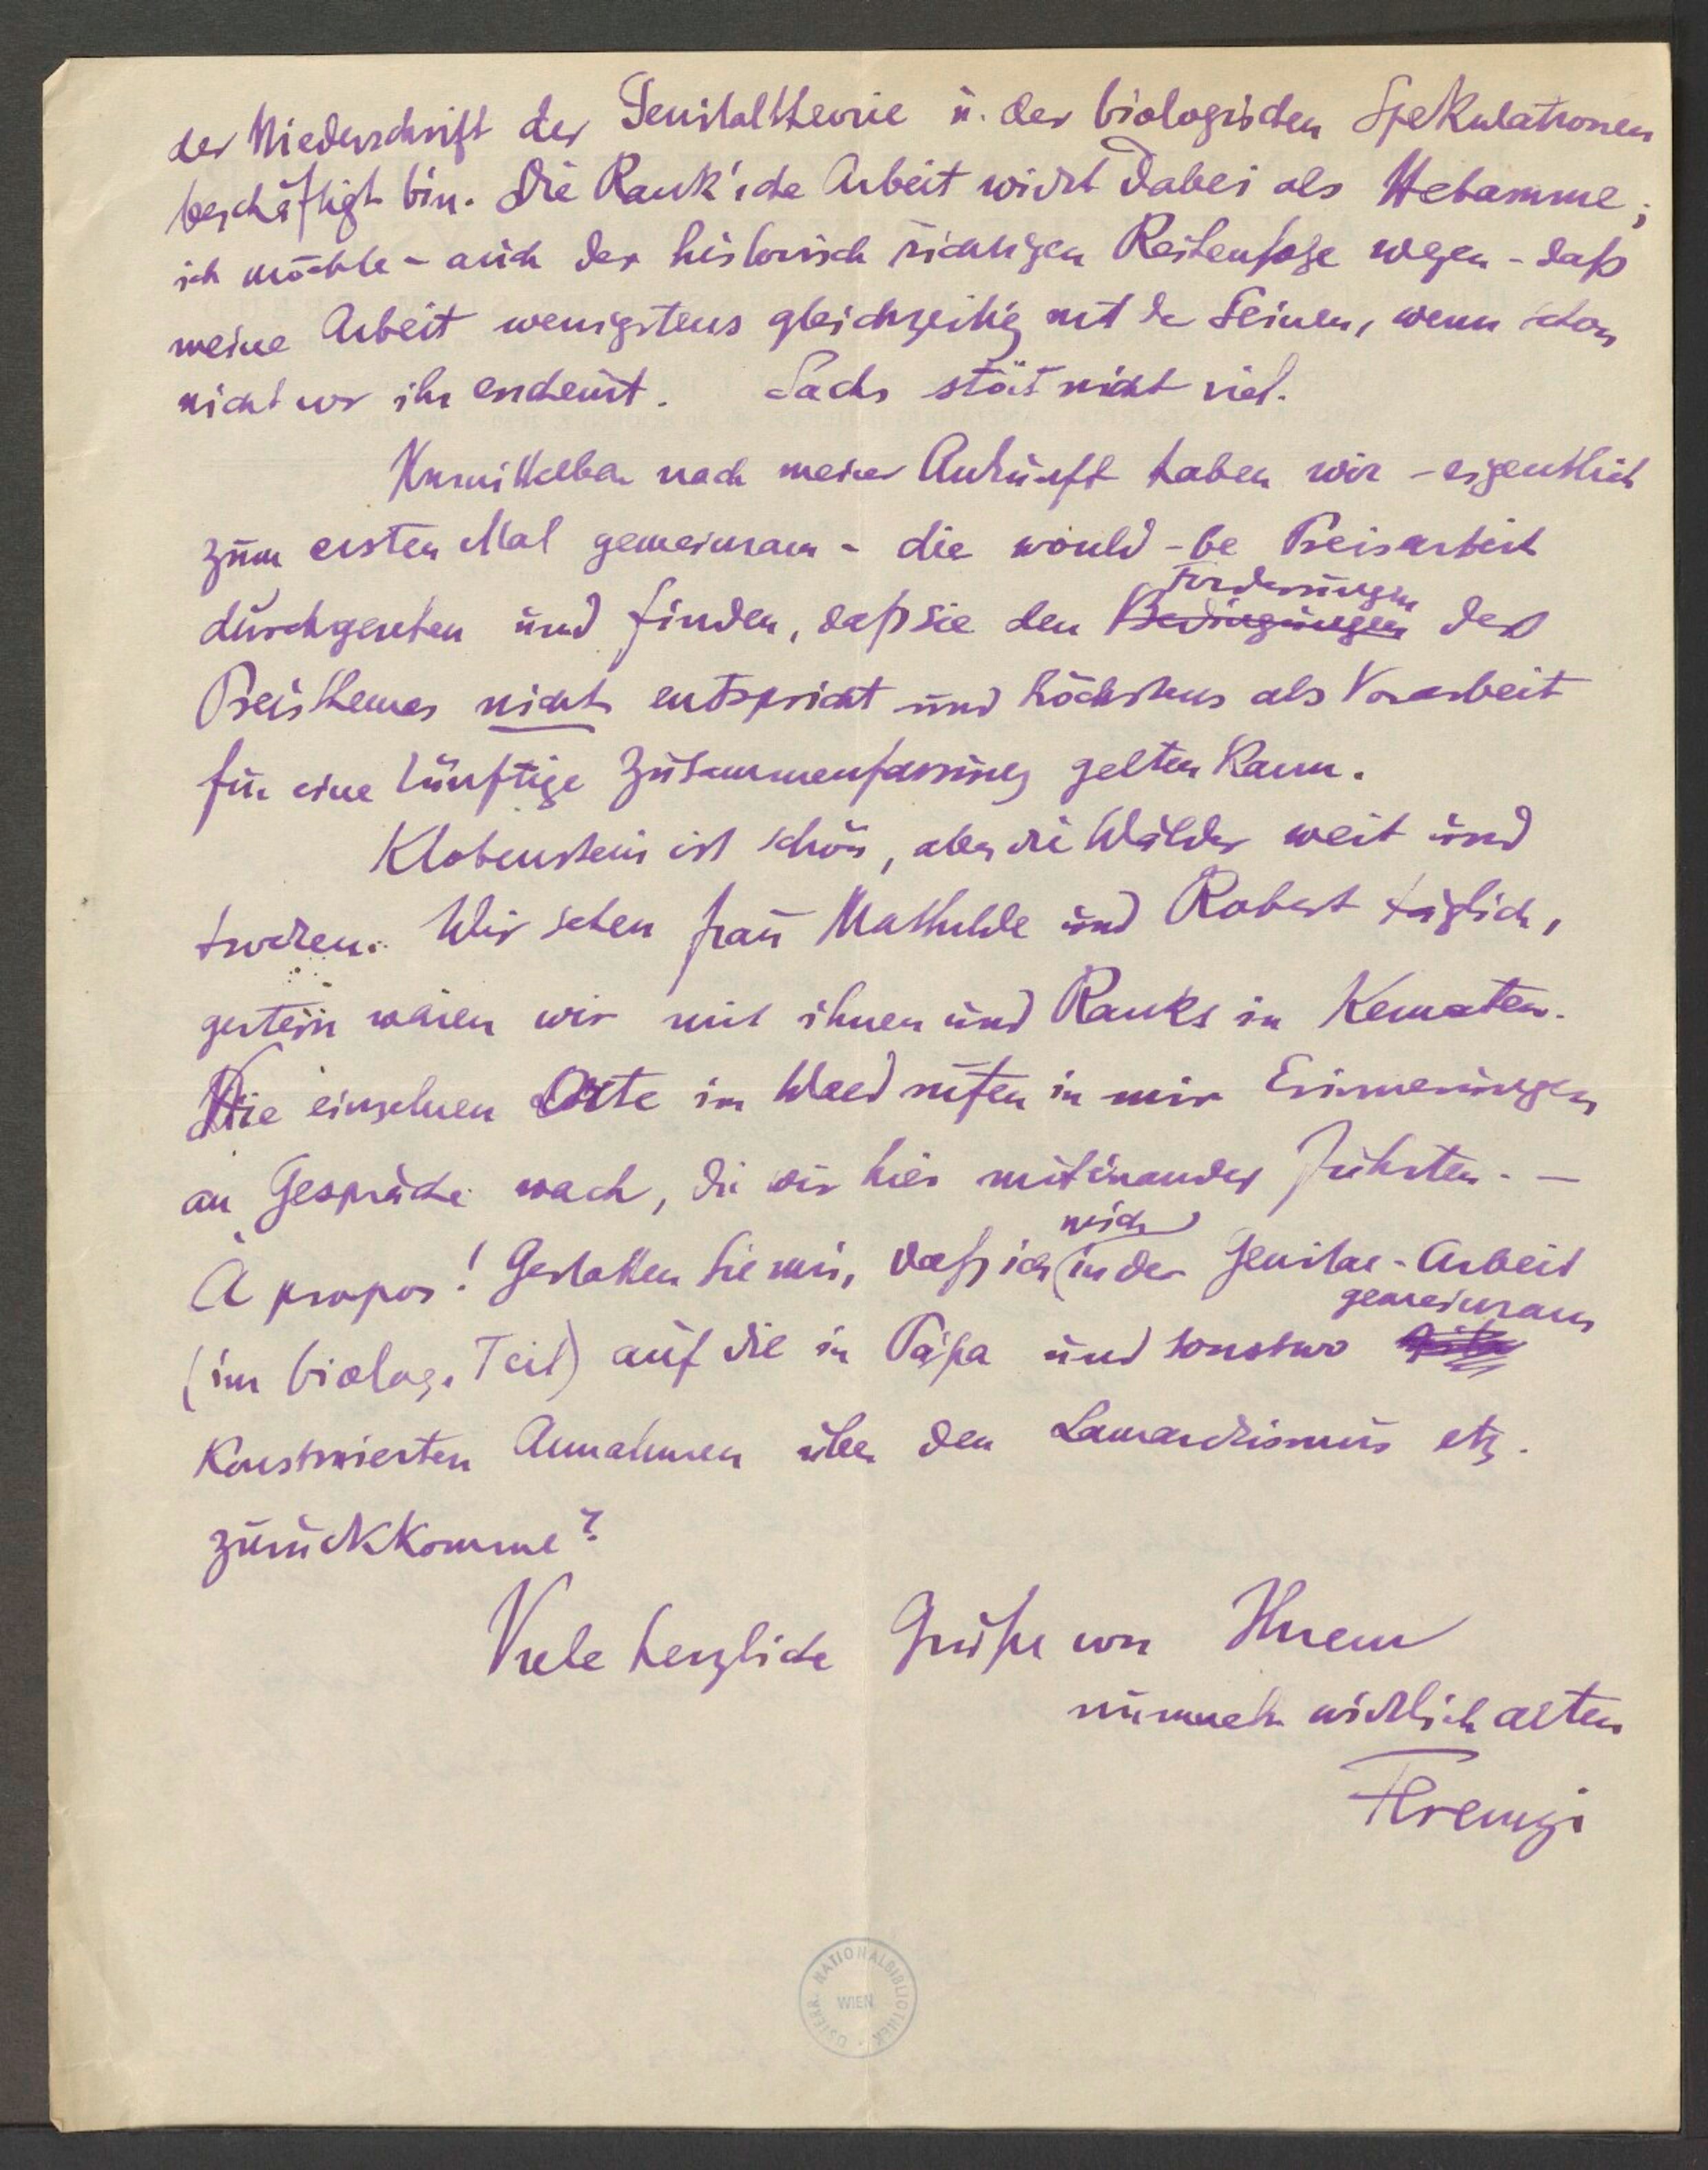 der Niederschrift der Genitaltheorie u. der biologischen Spekulationen
beschäftigt bin. Die Rank'sche Arbeit wirkt dabei als Hebamme;
ich möchte – auch der historisch richtigen Reihenfolge wegen – daß
meine Arbeit wenigstens gleichzeitig mit der Seinen, wenn schon
nicht vor ihr erscheint. Sachs stört nicht viel.
Unmittelbar nach meiner Ankunft haben wir – eigentlich
zum ersten Mal gemeinsam – die would-be Preisarbeit
durchgesehen und finden, daß sie den Bedingungen Forderungen des
Preisthemas nicht entspricht und höchstens als Vorarbeit
für eine künftige Zusammenfassung gelten kann.
Klobenstein ist schön, aber die Wälder weit und
trocken. Wir sehen Frau Mathilde und Robert täglich,
gestern waren wir mit ihnen und Ranks in Kematen.
Die einzelnen Orte im Wald rufen in mir Erinnerungen
an Gespräche wach, die wir hier miteinander führten. –
À propos! Gestatten Sie mir, daß ich mich in der Genital-Arbeit
(im biolog. Teil) auf die in Pápa und sonstwo gemeinsam
konstruierten Annahmen über den Lamarckismus etz.
zurückkomme?
Viele herzliche Grüße von Ihrem
nunmehr wirklich alten
Ferenczi
ÖSTERR. NATIONALBIBLIOTHEK
WIEN